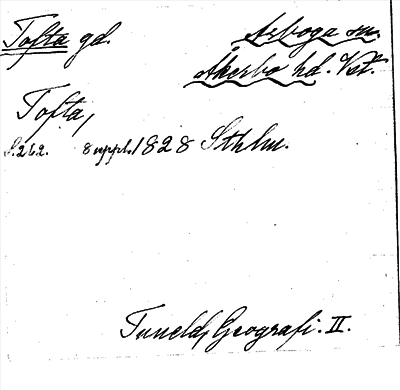 Tofta gd. Arboga sn.
Åkerbo hd. Vst.
Tofta,
S. 262. 8 uppl. 1828 Sthlm.
Tuneld, Geografi. II.